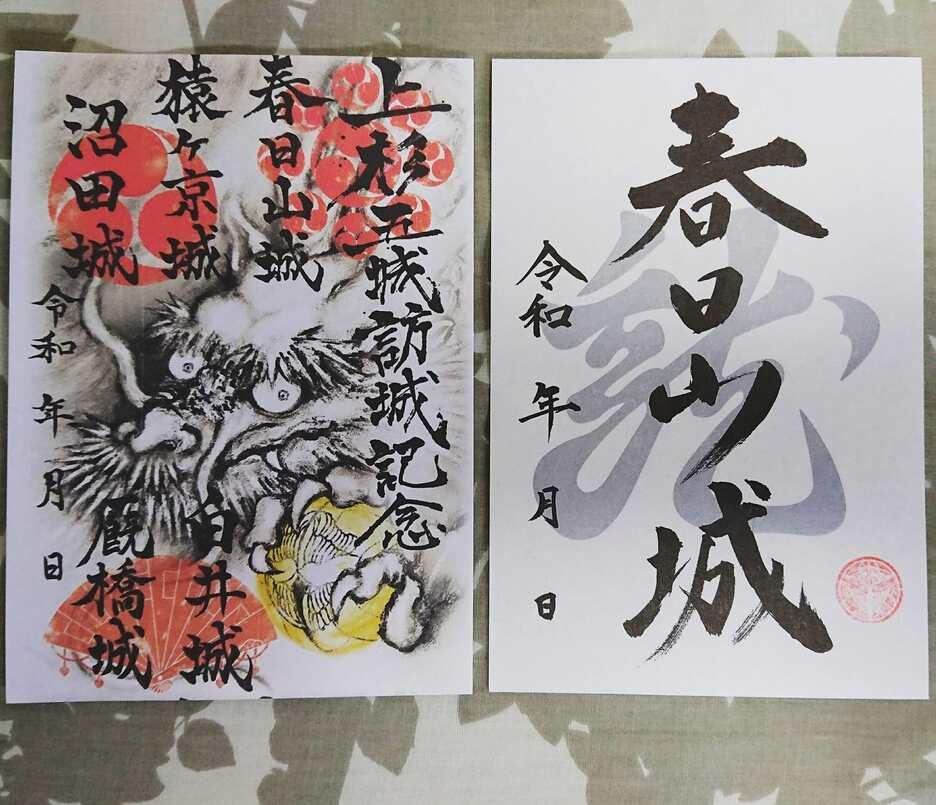 上杉五城訪城記念
春日山城
猿ヶ京城
沼田城
令和 年 月 日
白井城
厩橋城
春日山城
龍
令和 年 月 日